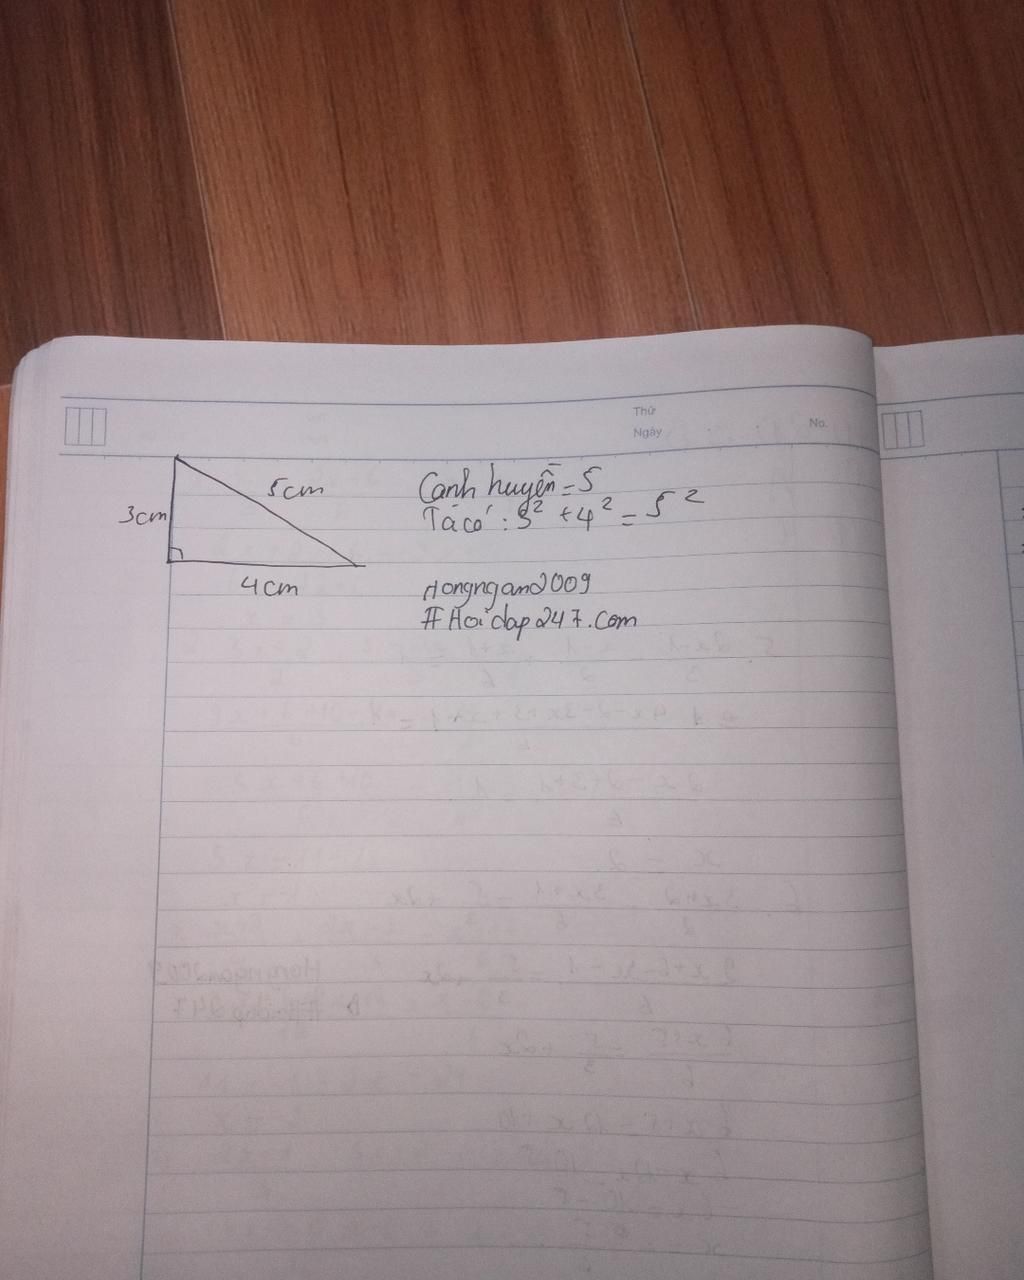 Thứ
Ngày
No.
5cm
3cm
4cm
Cạnh huyền = 5
Ta có : 3² + 4² = 5²
Hongngan2009
#Hoidap247.com